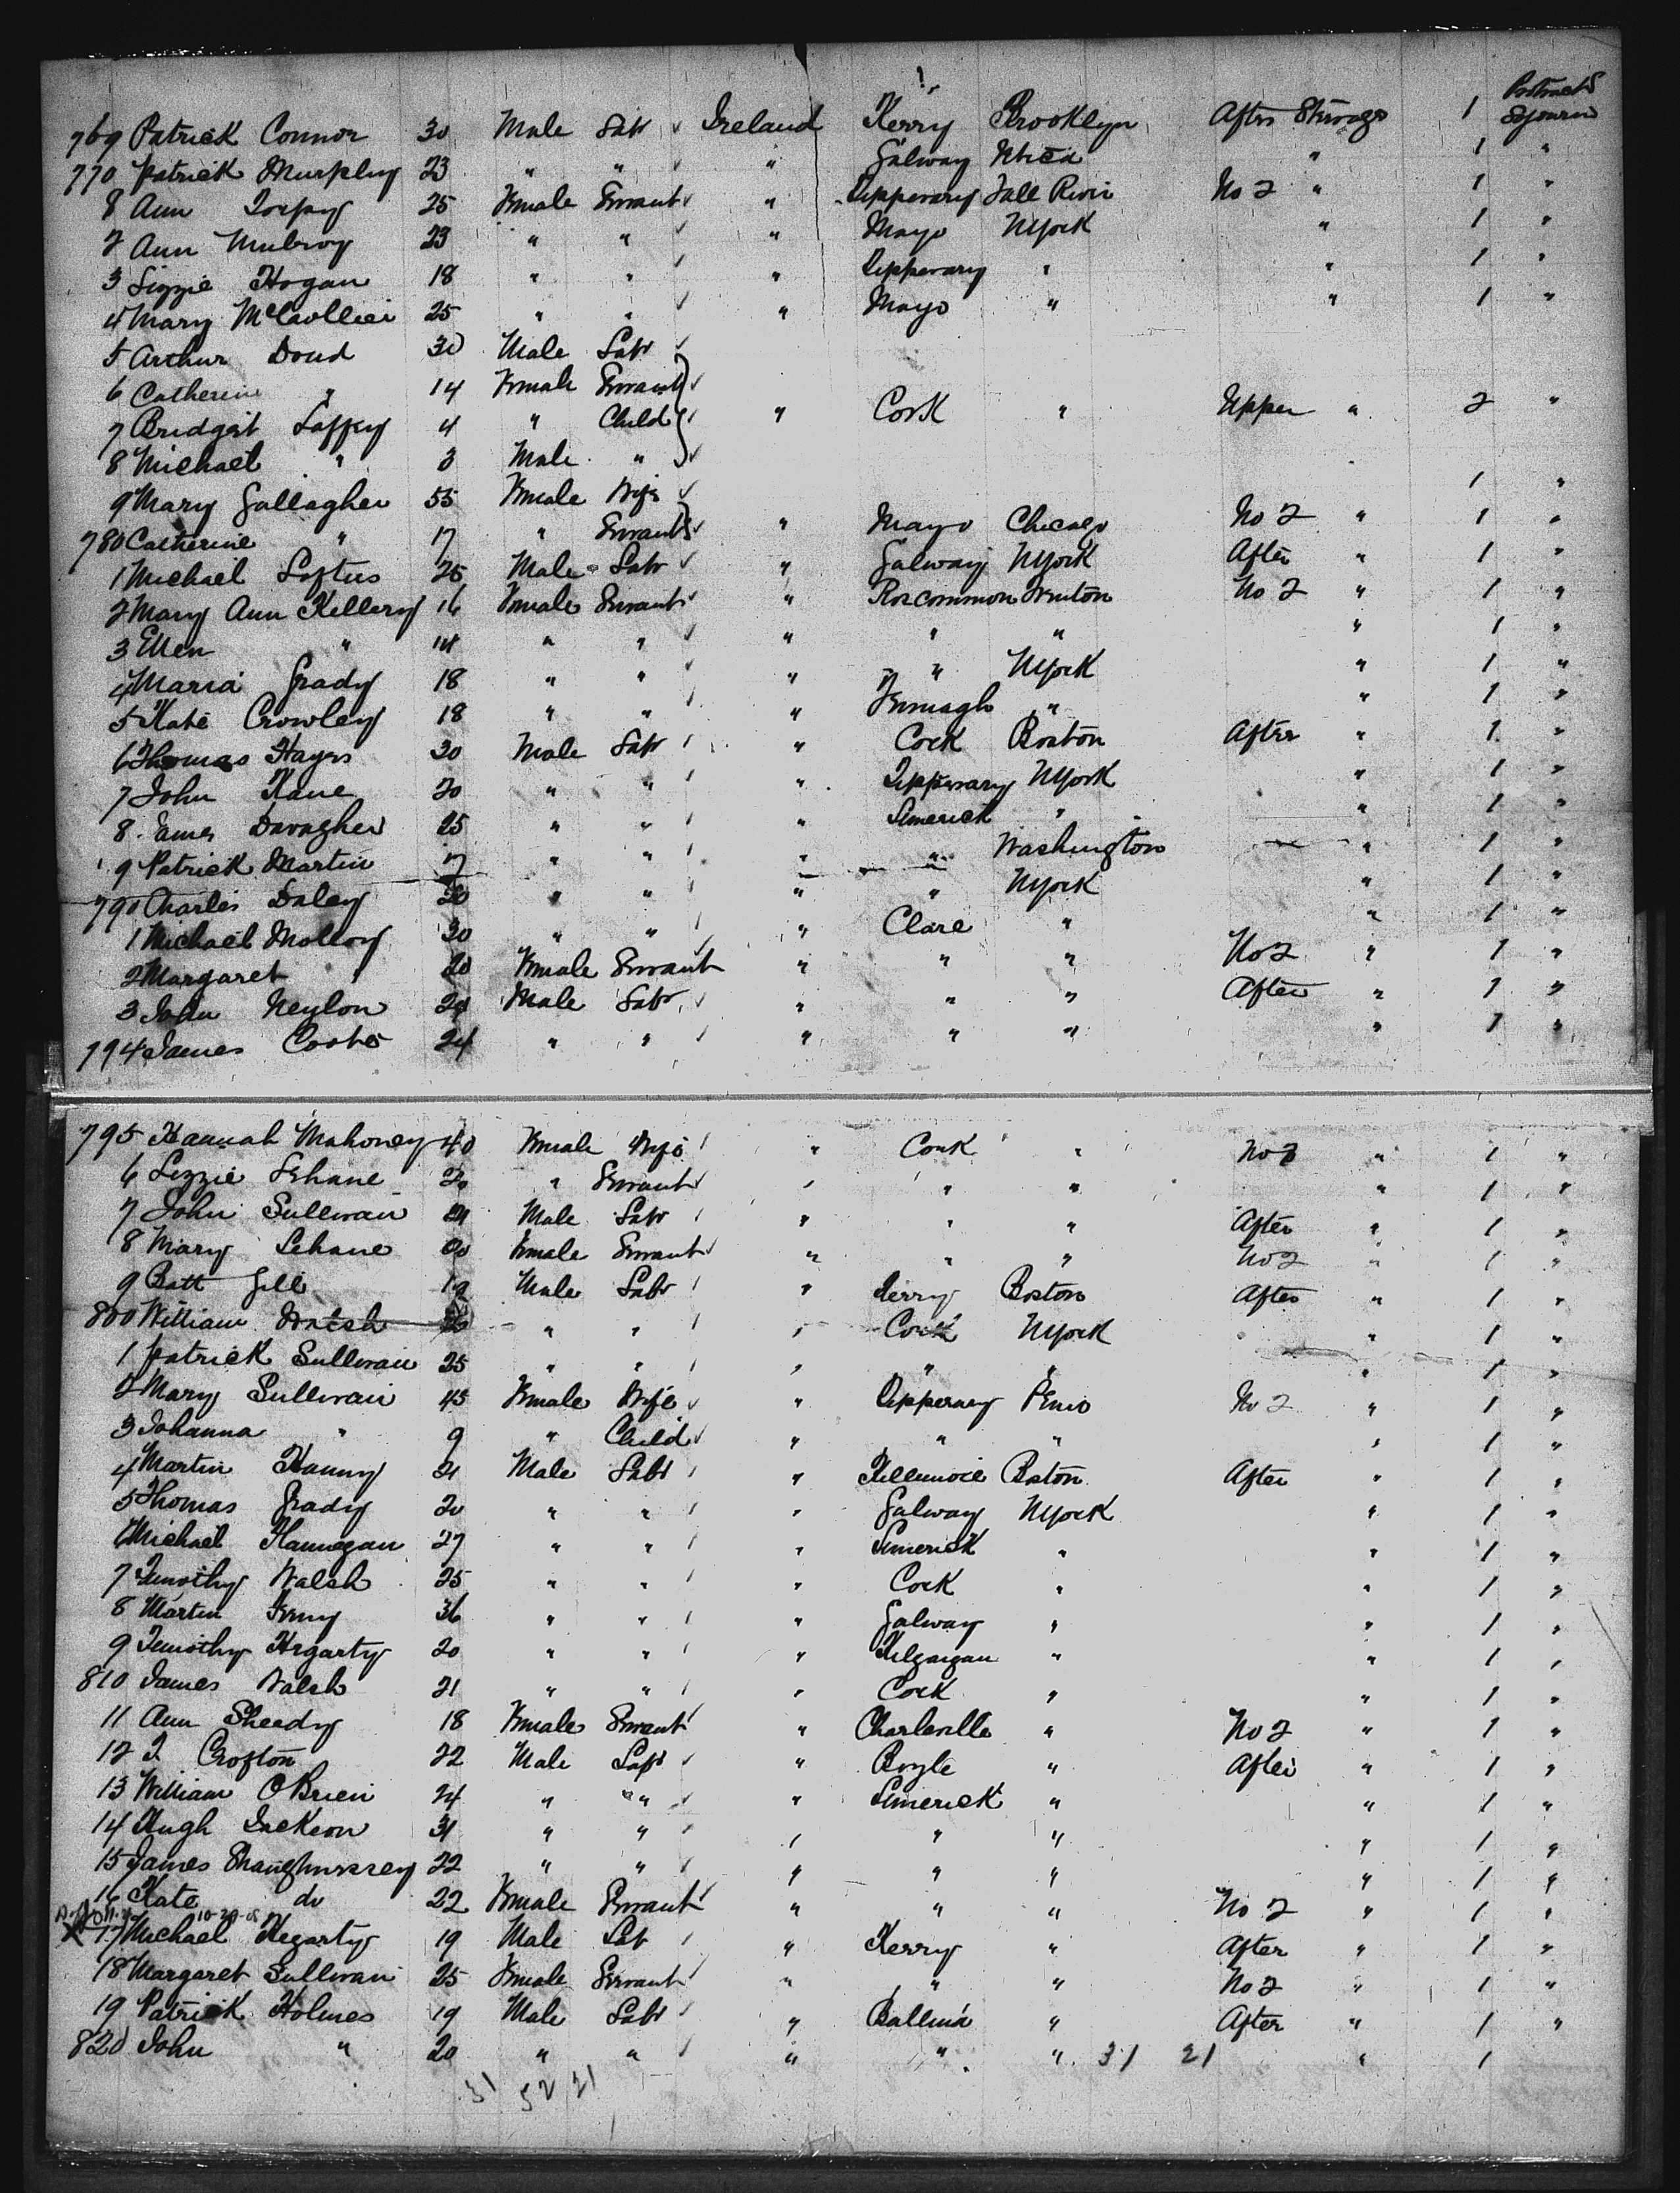 Protracted
769 Patrick Connor 30 Male Labr Ireland Kerry Brooklyn After Steerage 1 Sojourn
770 Patrick Murphy 23 " " " Galway Utica " 1 "
8 Ann 25 Female Servant " Tipperary Fall River No 2 " 1 "
2 Ann Mulroy 23 " " " Mayo NYork " 1 "
3 Lizzie Hogan 18 " " " Tipperary " " 1 "
4 Mary 25 " " " Mayo " " 1 "
5 Arthur Doud 30 Male Labr
6 Catherine " 14 Female Servant
7 Bridget Laffey 4 " Child " Cork " Upper " 2 "
8 Michael " 3 Male "
9 Mary Gallagher 55 Female Wife 1 "
780 Catherine " 17 " Servant " Mayo Chicago No 2 " 1 "
1 Michael Loftus 25 Male Labr " Galway NYork After " 1 "
2 Mary Ann Killery 16 Female Servant " Roscommon Trenton No 2 " 1 "
3 Ellen " 14 " " " " " " 1 "
4 Maria Grady 18 " " " " NYork " 1 "
5 Kate Crowley 18 " " " " " 1 "
6 Thomas Hayes 30 Male Labr " Cork Boston After " 1 "
7 John Kane 20 " " " Tipperary NYork " 1 "
8 James Davagher 25 " " " Limerick " " 1 "
9 Patrick Martin " " " " Washington " 1 "
790 Charles Daley 20 " " " " NYork " 1 "
1 Michael Molloy 30 " " " Clare " " 1 "
2 Margaret " 20 Female Servant " " " No 2 " 1 "
3 John Neylon Male Labr " " " After " 1 "
794 James 24 " " " " " " 1 "
795 Hannah Mahoney 40 Female Wife " Cork " No 2 " 1 "
6 Lizzie Lehane 20 " Servant " " " " 1 "
7 John Sullivan Male Labr " " " After " 1 "
8 Mary Lehane Female Servant " " " No 2 " 1 "
9 Batt Gill 19 Male Labr " Kerry Boston After " 1 "
800 William Walsh " " " Cork NYork " 1 "
1 Patrick Sullivan 25 " " " " " " 1 "
2 Mary Sullivan 45 Female Wife " Tipperary No 2 " 1 "
3 Johanna " 9 " Child " " " " 1 "
4 Martin Hanny 21 Male Labr " Boston After " 1 "
5 Thomas Grady 20 " " " Galway NYork " 1 "
6 Michael Flannegan 27 " " " Limerick " " 1 "
7 Timothy Walsh 25 " " " Cork " " 1 "
8 Martin 36 " " " Galway " " 1 "
9 Timothy Hegarty 20 " " " " " 1 "
810 James Walsh 21 " " " Cork " " 1 "
11 Ann Sheedy 18 Female Servant " Charleville " No 2 " 1 "
12 J. Crofton 22 Male Labr " Boyle " After " 1 "
13 William OBrien 24 " " " Limerick " " 1 "
14 Hugh Jackson 31 " " " " " " 1 "
15 James Shaughnessey 22 " " " " " " 1 "
16 Kate do 22 Female Servant " " " No 2 " 1 "
X 17 Michael Hegarty 19 Male Lab " Kerry " After " 1 "
18 Margaret Sullivan 25 Female Servant " " " No 2 " 1 "
19 Patrick Holmes 19 Male Labr " Ballina " After " 1 "
820 John " 20 " " " " " 31 21 " 1
31 52 21